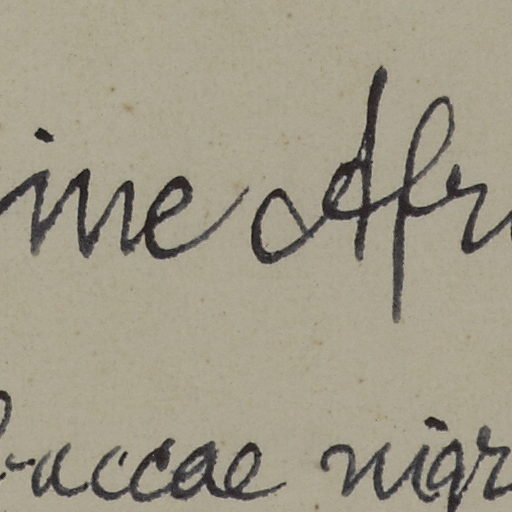 ine Afr
baccae nigr